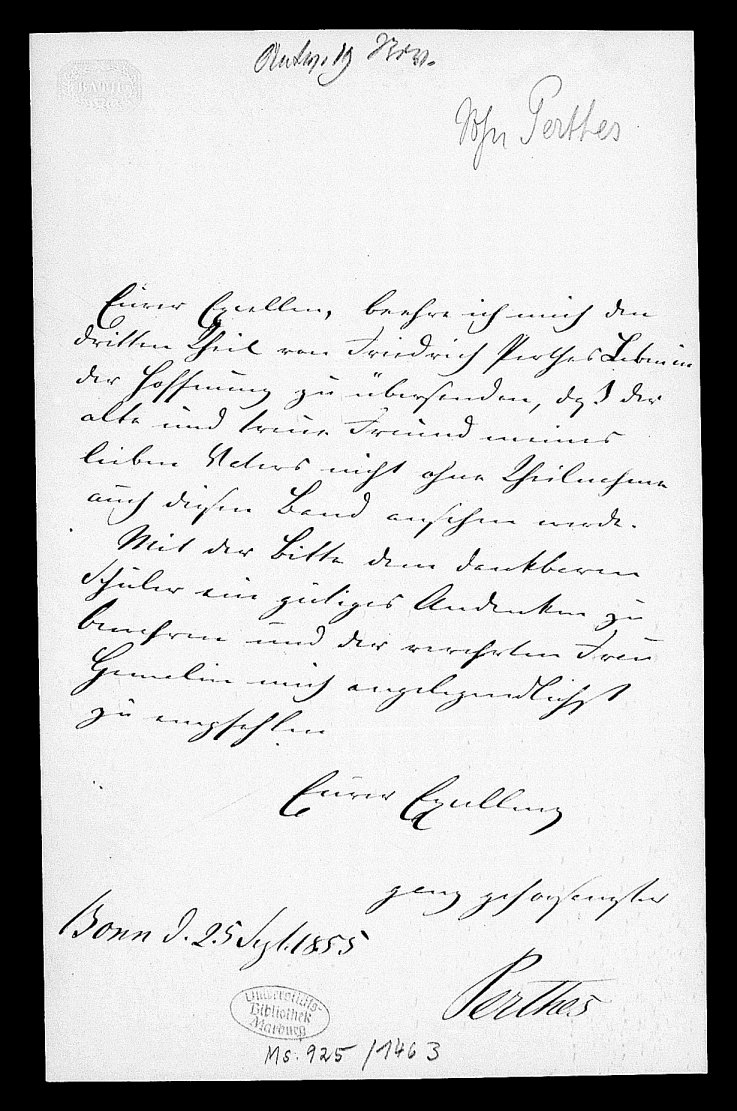 BATH
Antw. 19 Nov.
Perthes
Eurer Excellenz beehre ich mich den
dritten Theil von Friedrich Perthes Leben in
der Hoffnung zu übersenden, daß der
alte und treue Freund meines
lieben Vaters nicht ohne Theilnahme
auch diesen Band ansehen werde.
Mit der Bitte dem dankbaren
Schüler ein gütiges Andenken zu
bewahren und der verehrten Frau
Gemalin mich angelegendlichst
zu empfehlen
Eurer Excellenz
ganz gehorsamster
Bonn d. 25 Sept. 1855
Perthes
Universitäts-
Bibliothek
Marburg
Ms. 925/1463